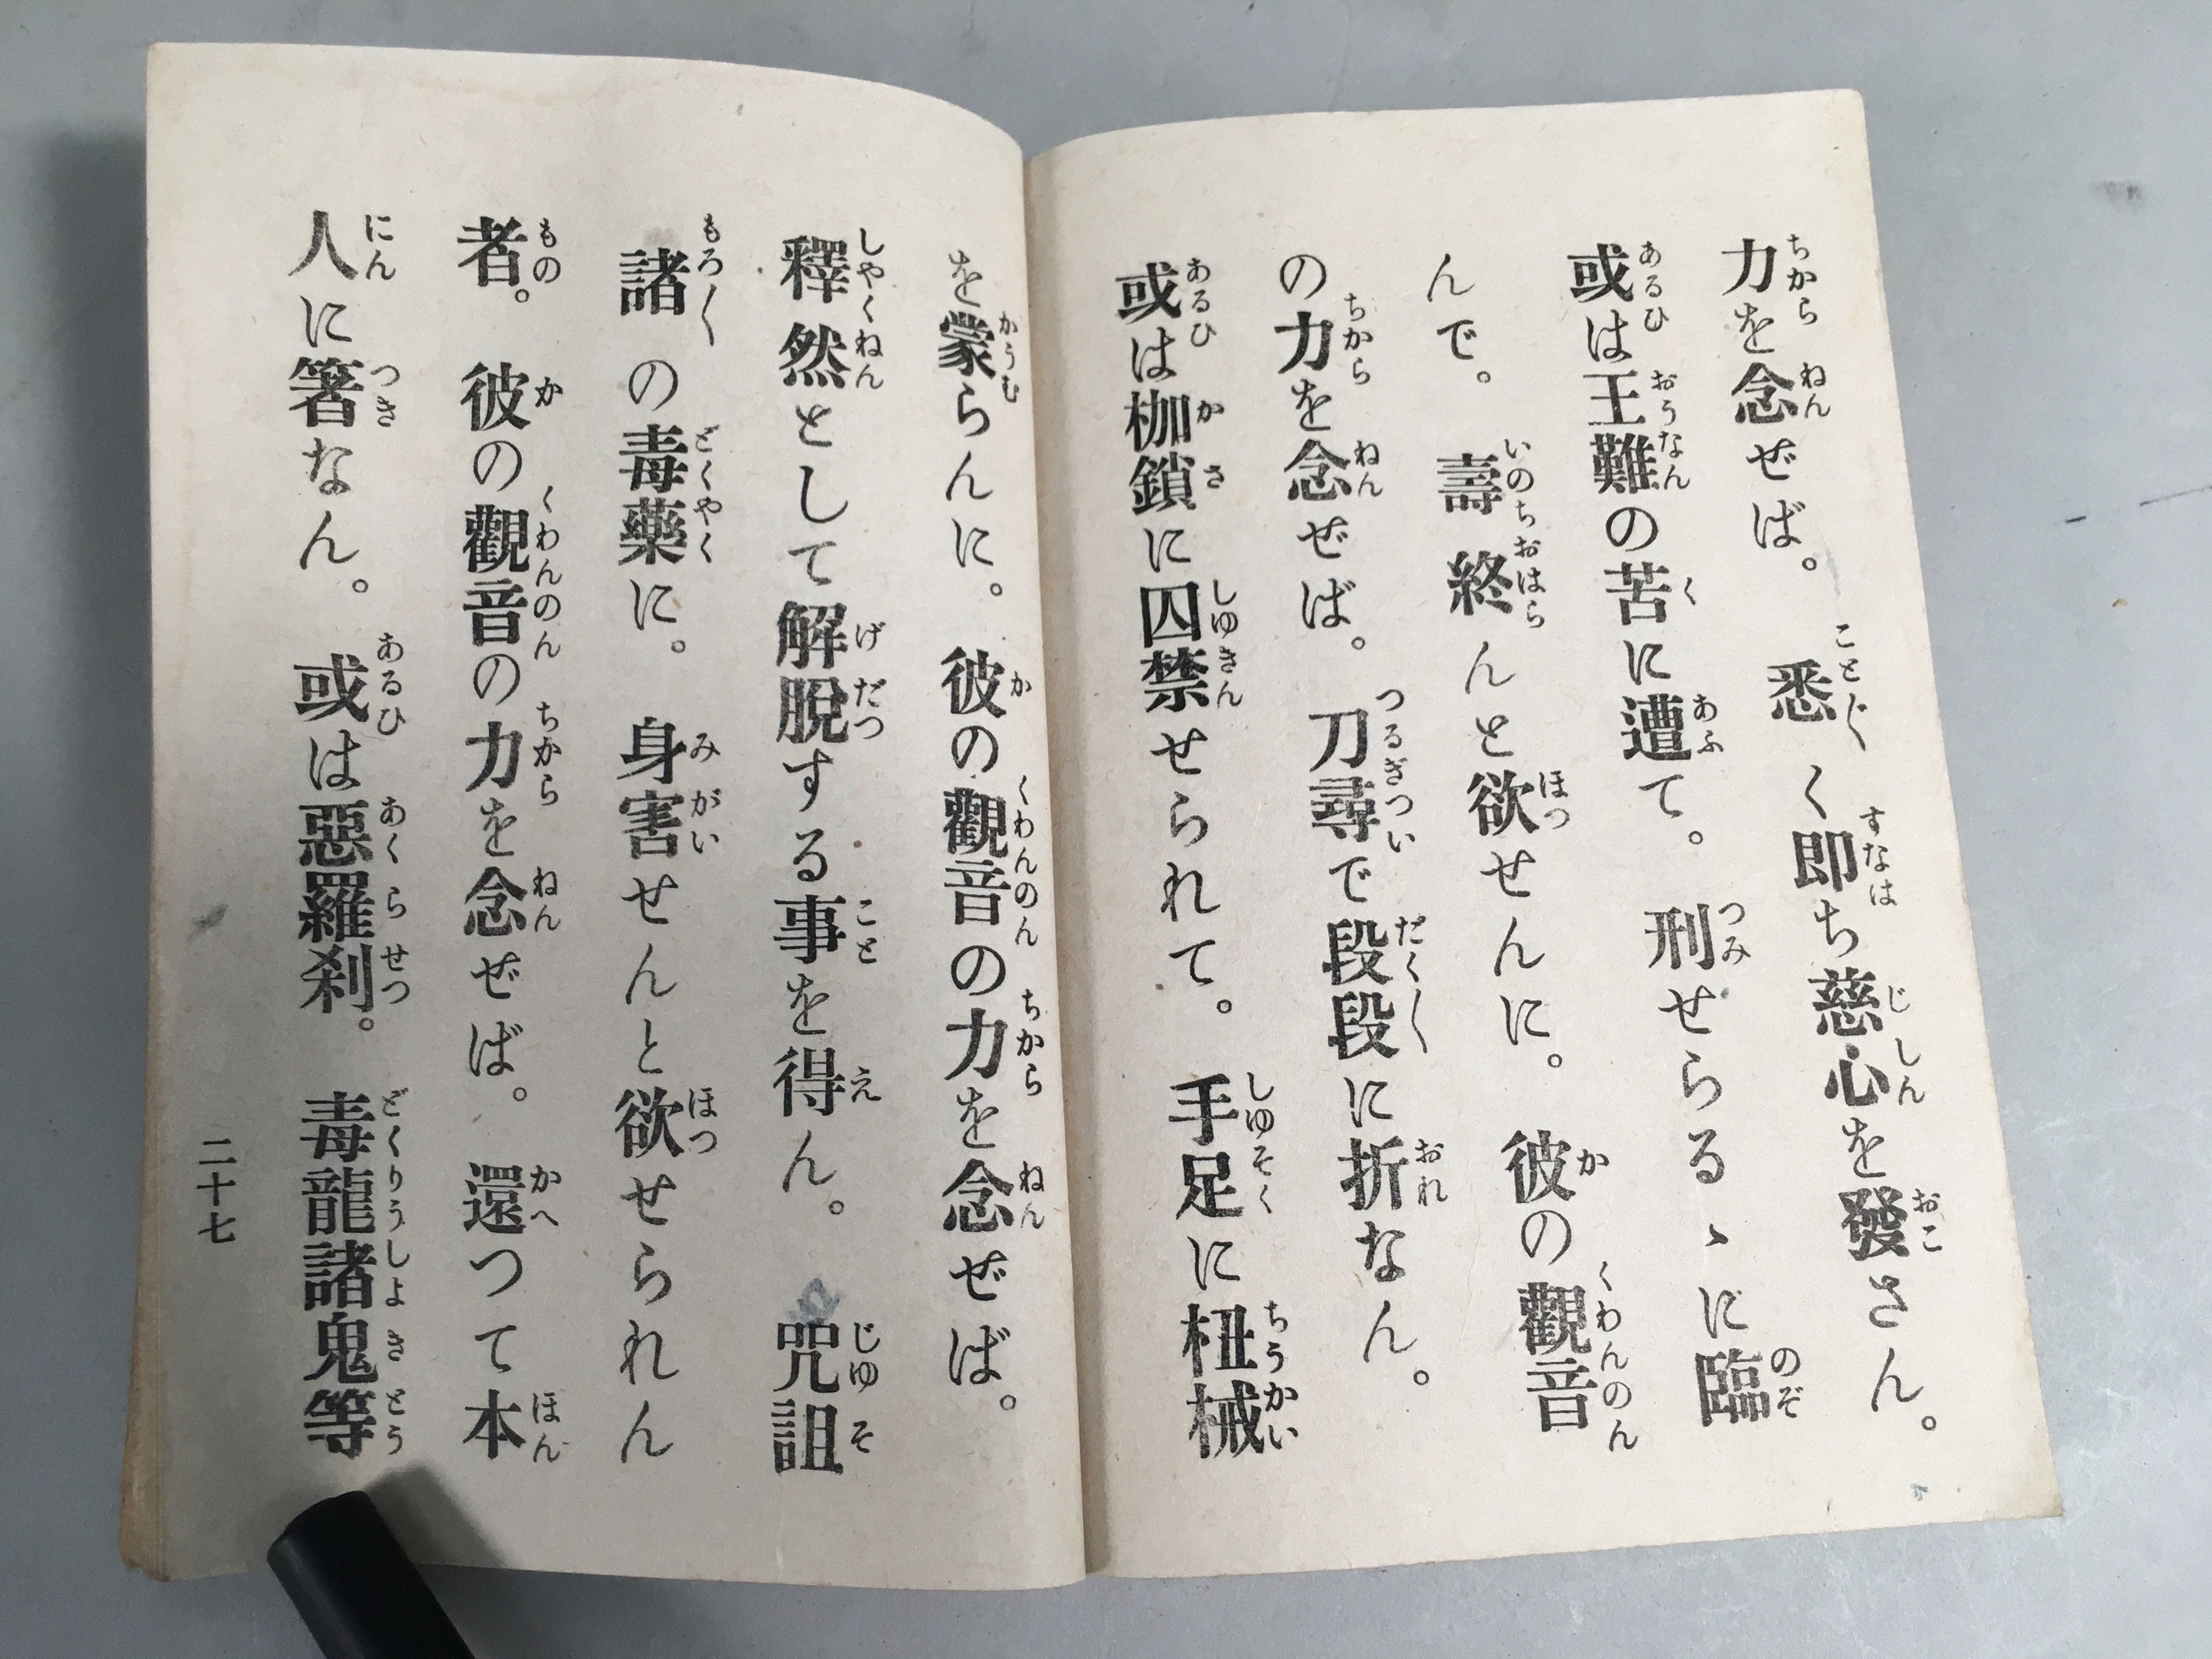 力を念ぜば。悉く即ち慈心を發さん。
或は王難の苦に遭て。刑せらるゝに臨
んで。壽終んと欲せんに。彼の觀音
の力を念ぜば。刀尋で段段に折なん。
或は枷鎖に囚禁せられて。手足に杻械
を蒙らんに。彼の觀音の力を念ぜば。
釋然として解脫する事を得ん。咒詛
諸の毒藥に。身害せんと欲せられん
者。彼の觀音の力を念ぜば。還つて本
人に箸なん。或は惡羅刹。毒龍諸鬼等
二十七